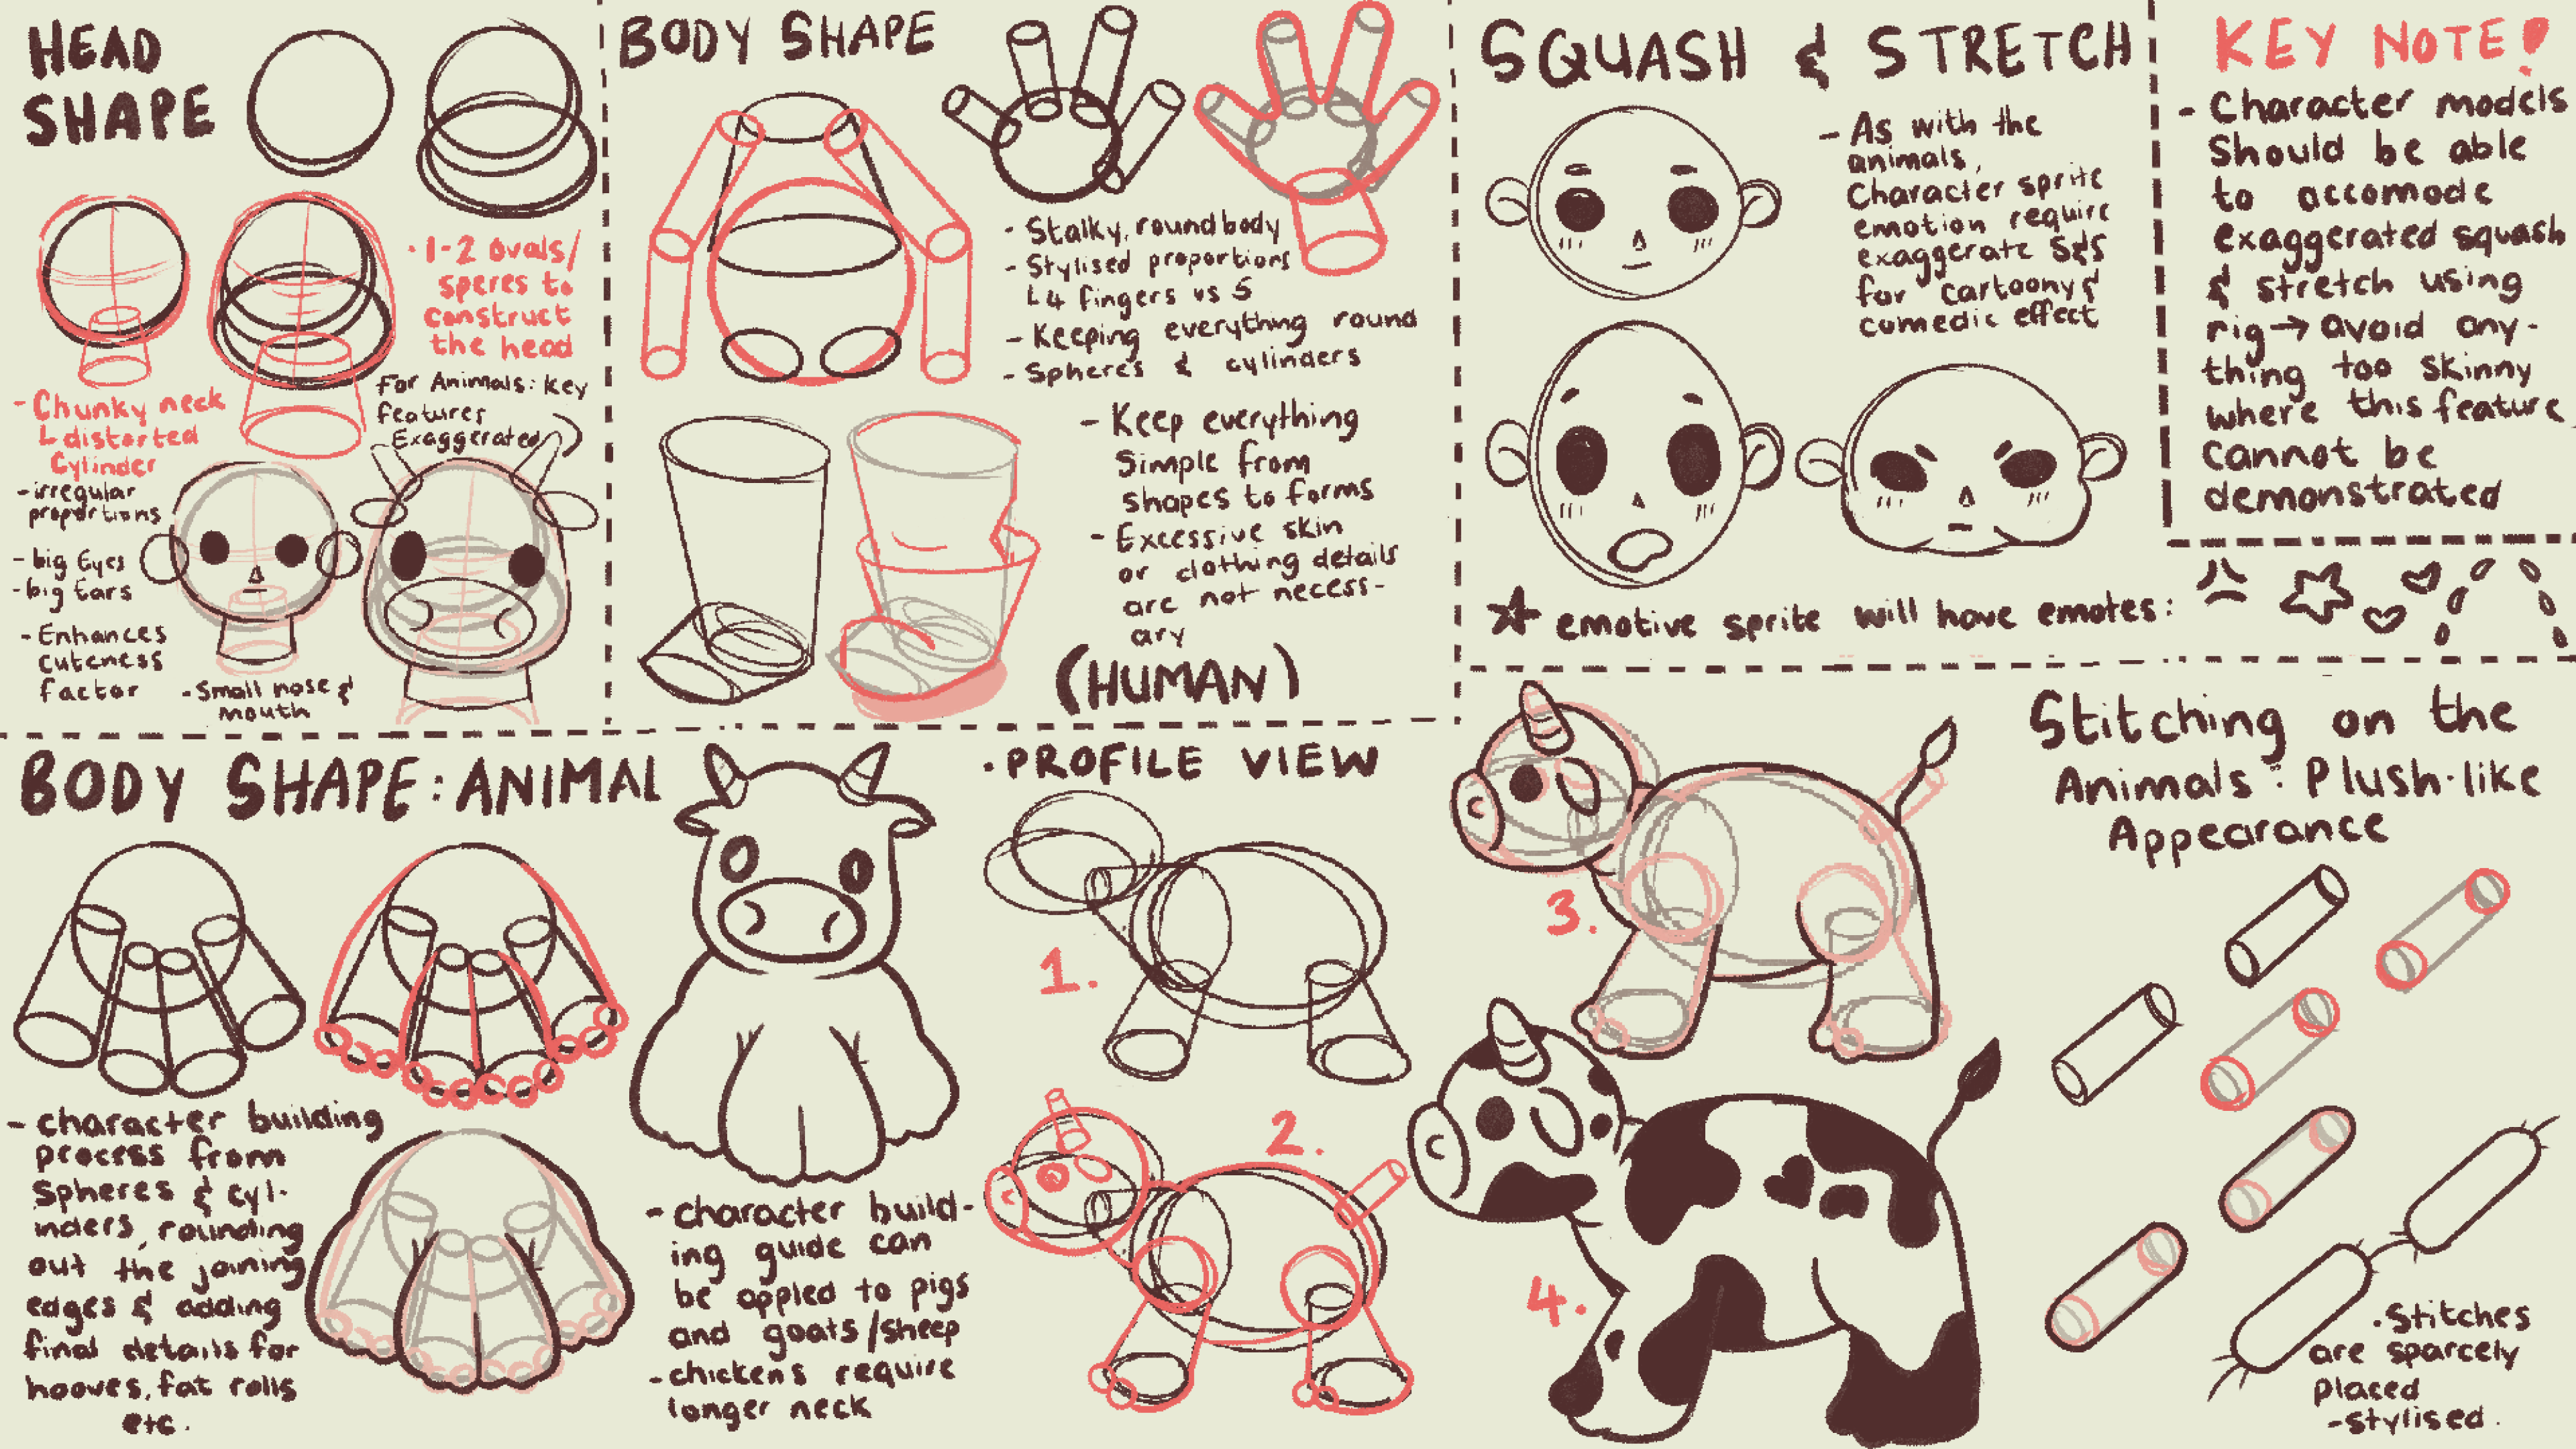 HEAD
SHAPE
· 1-2 ovals/
speres to
construct
the head
- Chunky neck
L distorted
Cylinder
For Animals: Key
features
Exaggerated
- irregular
proportions
- big Eyes
- big Ears
- Enhances
cuteness
factor
- Small nose &
mouth
BODY SHAPE
- Stalky, round body
- Stylised proportions
L 4 fingers vs 5
- Keeping everything round
- Spheres & cylinders
- Keep everything
Simple from
shapes to forms
- Excessive skin
or clothing details
are not necess-
ary
(HUMAN)
SQUASH & STRETCH
- As with the
animals,
Character sprite
emotion require
exaggerate S&S
for cartoony &
comedic effect
emotive sprite will have emotes:
KEY NOTE!
- Character models
Should be able
to accomode
exaggerated squash
& stretch using
rig → avoid any-
thing too skinny
where this feature
cannot be
demonstrated
BODY SHAPE: ANIMAL
- character building
process from
spheres & cyl-
inders, rounding
out the joining
edges & adding
final details for
hooves, fat rolls
etc.
- character build-
ing guide can
be appled to pigs
and goats/sheep
- chickens require
longer neck
· PROFILE VIEW
1.
2.
3.
4.
Stitching on the
Animals: Plush-like
Appearance
· Stitches
are sparcely
placed
- stylised.